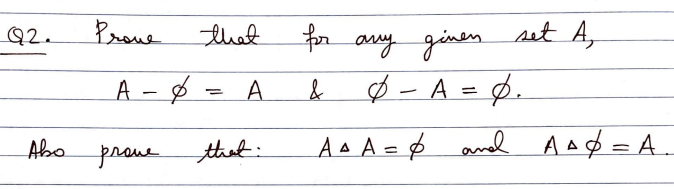 Q2. Prove that for any given set A,
A - ϕ = A & ϕ - A = ϕ.
Also prove that: A Δ A = ϕ and A Δ ϕ = A.